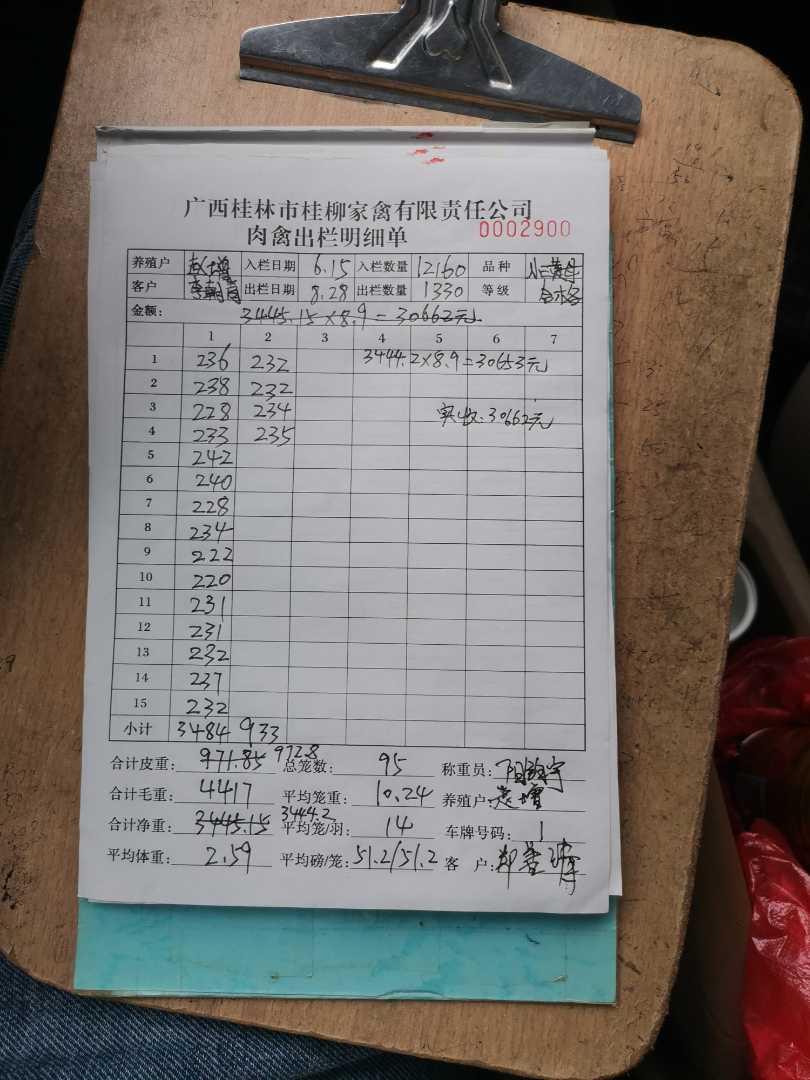 广西桂林市桂柳家禽有限责任公司
肉禽出栏明细单 0002900
养殖户 赵增 入栏日期 6.15 入栏数量 12160 品种
客户 李朝青 出栏日期 8.28 出栏数量 1330 等级 合格
金额: 3445.15×8.9=30662元
1 2 3 4 5 6 7
1 236 232 3444.2×8.9=30653元
2 238 232
3 228 234 实收:30662元
4 233 235
5 242
6 240
7 228
8 234
9 222
10 220
11 231
12 231
13 232
14 237
15 232
小计 3484 933
合计皮重: 971.85 972.8 总笼数: 95 称重员:
合计毛重: 4417 平均笼重: 10.24 养殖户: 赵增
合计净重: 3445.15 3444.2 平均笼/羽: 14 车牌号码: 1
平均体重: 2.59 平均磅/笼: 51.2/51.2 客 户: